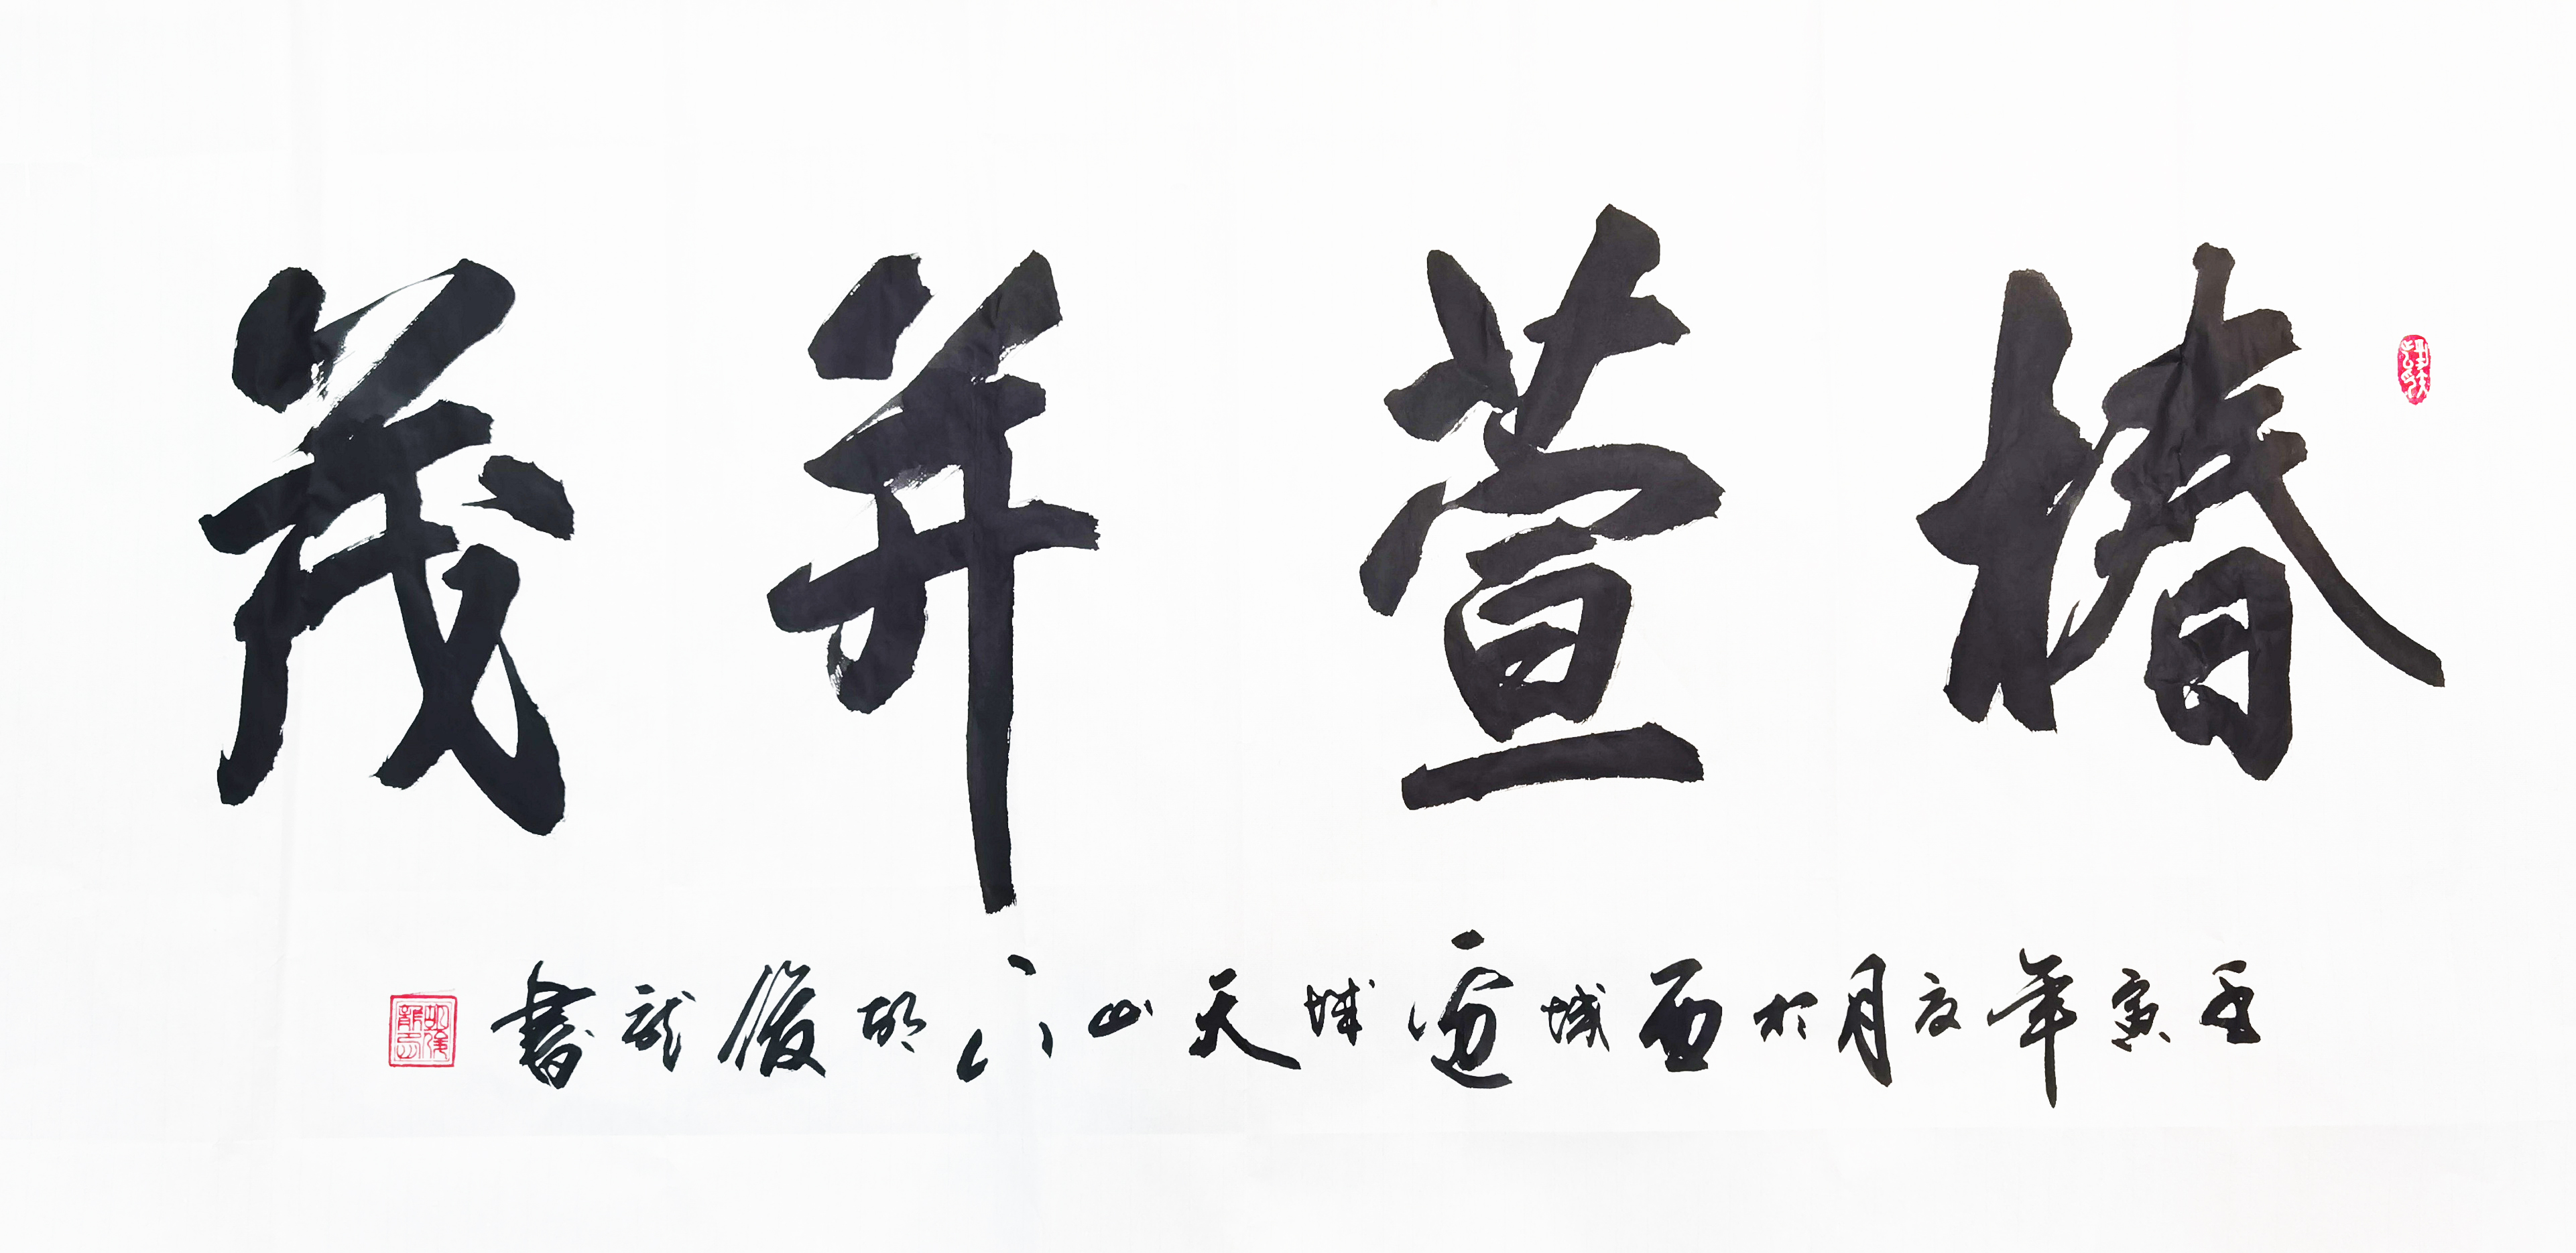 椿萱并茂
壬寅年夏月於西域邊城天山下胡俊龍書